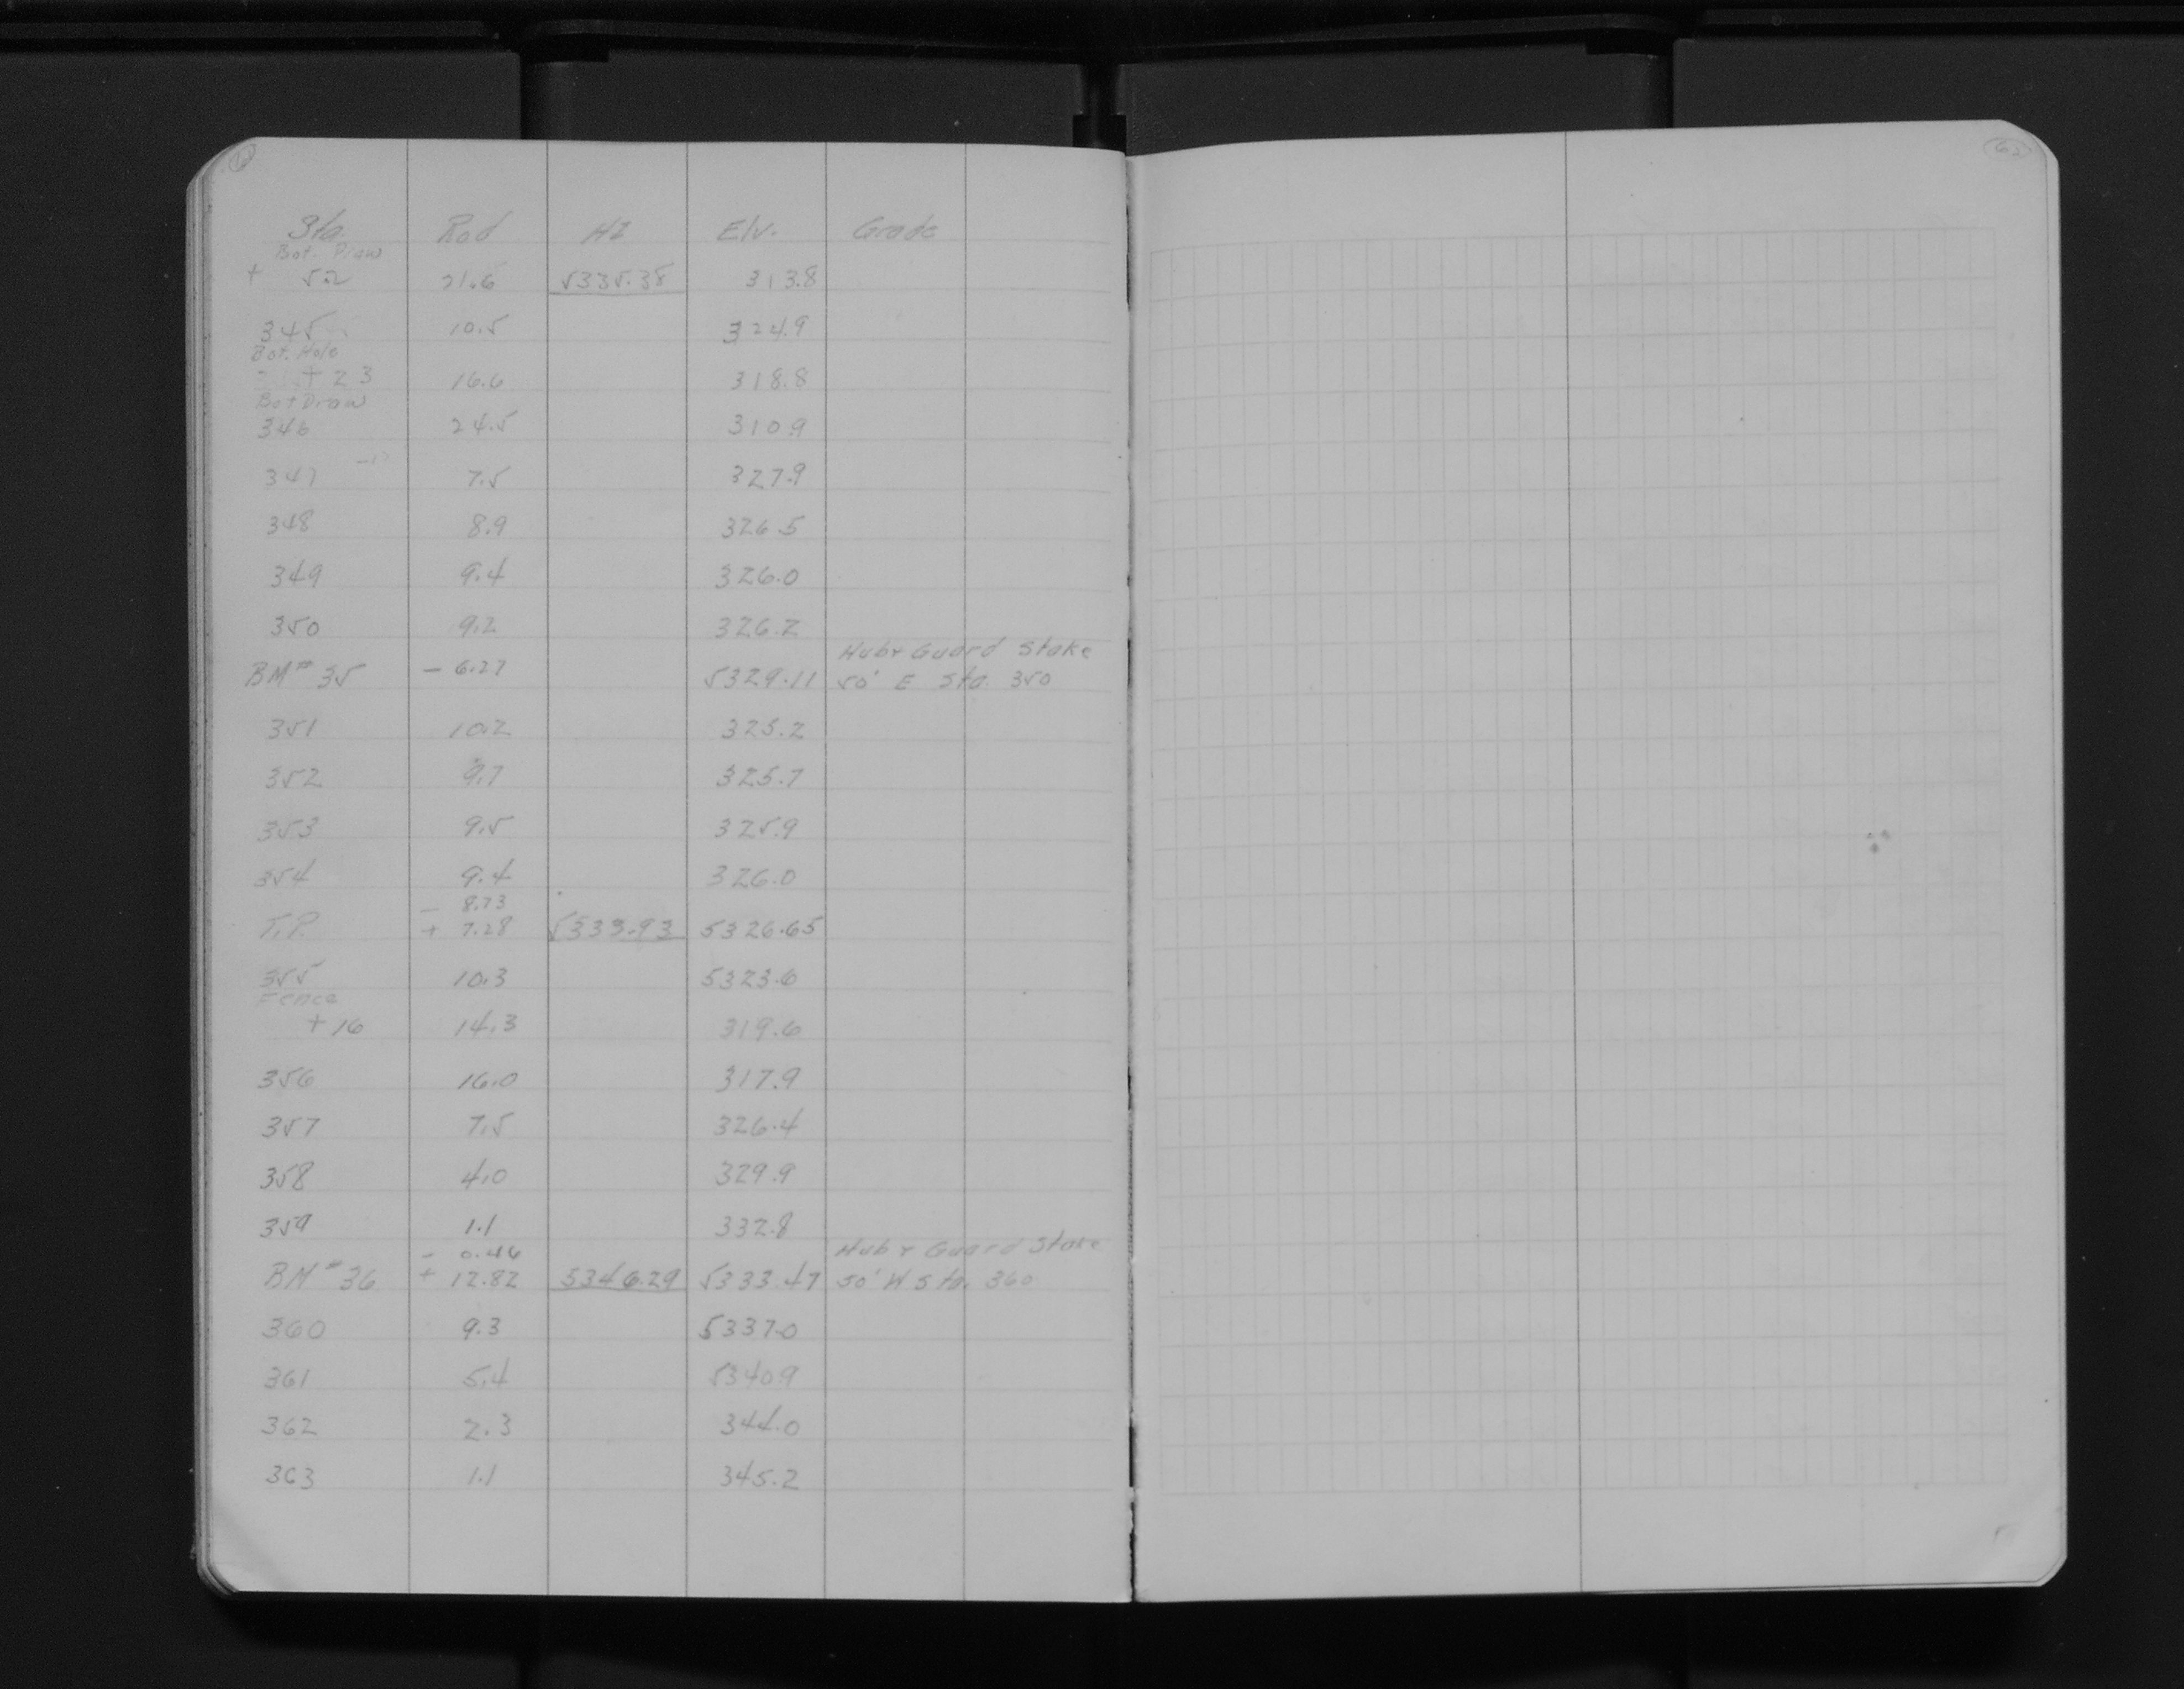 Sta. Rod HI Elv. Grade
Bot. Draw
+ 52 21.6 5335.38 313.8
345 10.5 324.9
Bot. Hole
+23 16.6 318.8
Bot Draw
346 24.5 310.9
347 7.5 327.9
348 8.9 326.5
349 9.4 326.0
350 9.2 326.2
Hub & Guard Stake
BM# 35 - 6.27 5329.11 50' E Sta. 350
351 10.2 325.2
352 9.7 325.7
353 9.5 325.9
354 9.4 326.0
- 8.73
T.P. + 7.28 5333.93 5326.65
355 10.3 5323.6
Fence
+16 14.3 319.6
356 16.0 317.9
357 7.5 326.4
358 4.0 329.9
359 1.1 332.8
- 0.46 Hub & Guard Stake
BM# 36 + 12.82 5346.29 5333.47 50' W Sta. 360
360 9.3 5337.0
361 5.4 5340.9
362 2.3 344.0
363 1.1 345.2
62